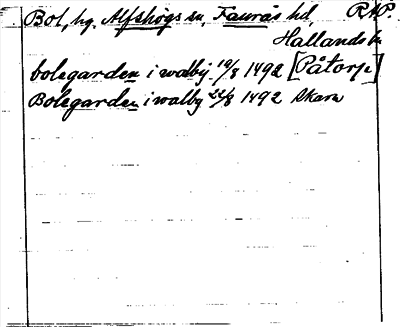 Bol, hg. Alfshögs sn, Faurås hd, RAP.
Hallands l.
bolegarden i walby 19/8 1492 [Påtorp]
Bolegarden i walby 22/8 1492 Skara